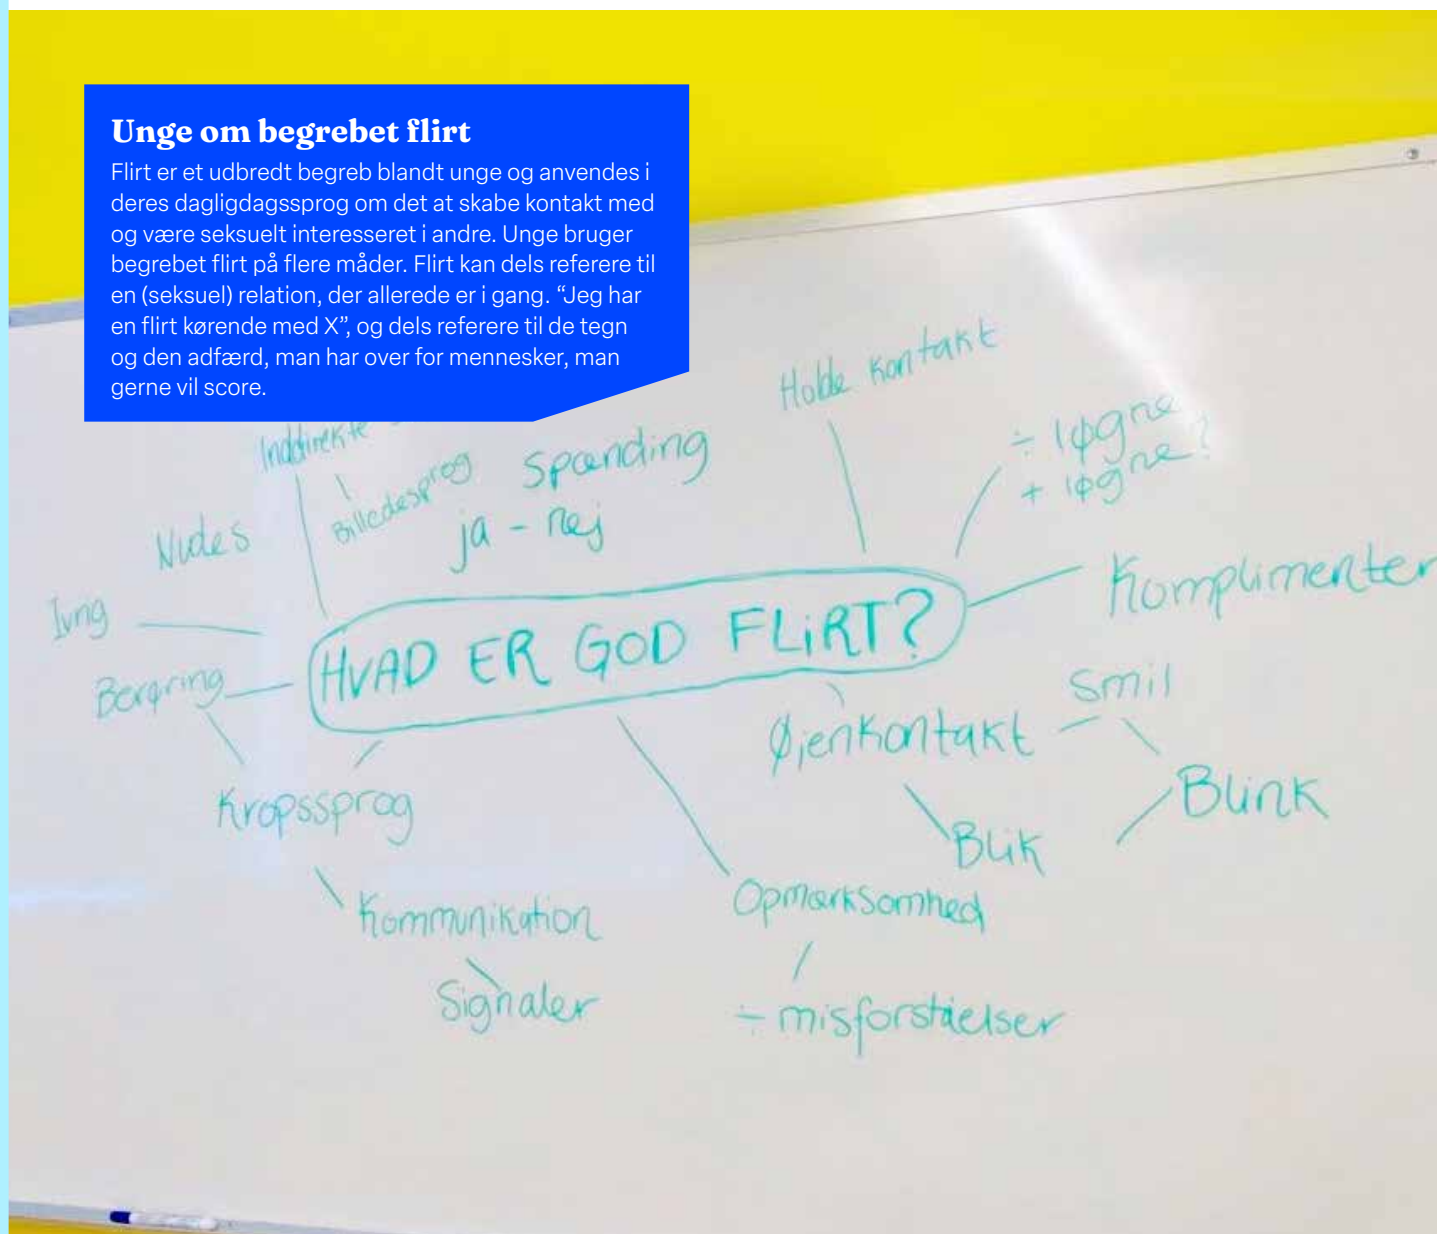 Unge om begrebet flirt
Flirt er et udbredt begreb blandt unge og anvendes i
deres dagligdagssprog om det at skabe kontakt med
og være seksuelt interesseret i andre. Unge bruger
begrebet flirt på flere måder. Flirt kan dels referere til
en (seksuel) relation, der allerede er i gang. “Jeg har
en flirt kørende med X”, og dels referere til de tegn
og den adfærd, man har over for mennesker, man
gerne vil score.
Holde kontakt
Inddirekte
Billedesprog
Spænding
ja - nej
÷ løgne
+ løgne?
Nudes
Komplimenter
HVAD ER GOD FLiRT?
Berøring
Smil
Øjenkontakt
Blink
Kropssprog
Blik
Opmærksomhed
Kommunikation
Signaler
÷ misforståelser